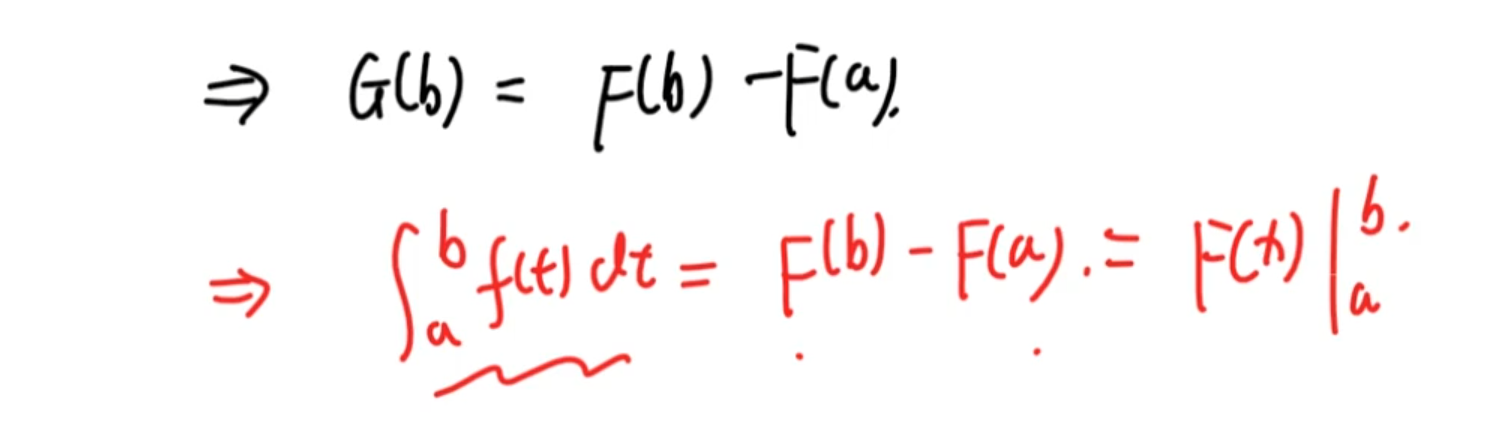 ⇒ G(b) = F(b) - F(a).
⇒ ∫_a^b f(t) dt = F(b) - F(a). = F(x) |_a^b.